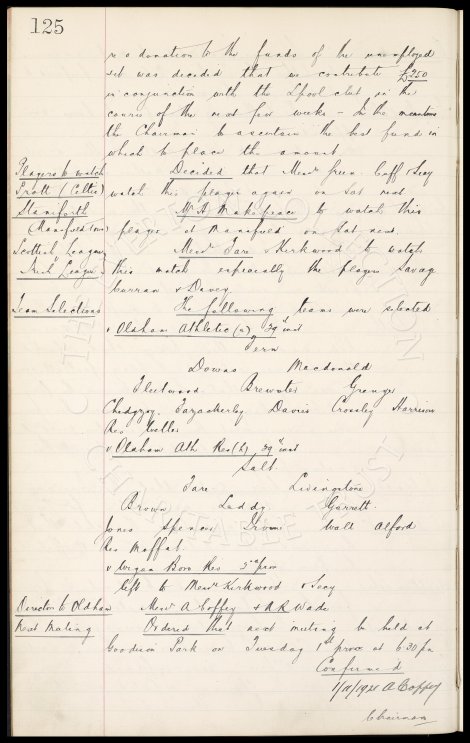 125
re a donation to the funds of the unemployed
& it was decided that we contribute £250
in conjunction with the Lpool club in the
course of the next few weeks - In the meantime
the Chairman to ascertain the best fund in
which to place the amount
Players to watch
Pratt (Celtic)
Decided that Messrs Green Coffey & Seay
watch this player again on Sat next
Staniforth
(Mansfield Town)
Mr A Makepeace to watch this
player at Mansfield on Sat next.
Scottish League v
Irish League
Messrs Fare & Kirkwood to watch
this match especially the players Savage
Curran & Davey
Team Selections
The following teams were selected
v Oldham Athletic (a) 29th inst
Fern
Downs Macdonald
Fleetwood Brewster Grenyer
Chedgzoy Fazackerley Davies Crossley Harrison
Res Weller
v Oldham Ath Res (h) 29th inst
Salt
Fare Livingstone
Brown Leddy Garratt
Jones Spencer Irvine Wall Alford
Res Moffat
v Wigan Boro Res prox
left to Messrs Kirkwood & Seay
Director to Oldham
Messrs A Coffey & A R Wade
Next Meeting
Ordered that next meeting be held at
Goodison Park on Tuesday 1st prox at 6 30 pm
Confirmed
1/11/1921 A Coffey
Chairman
THE
CHARITABLE